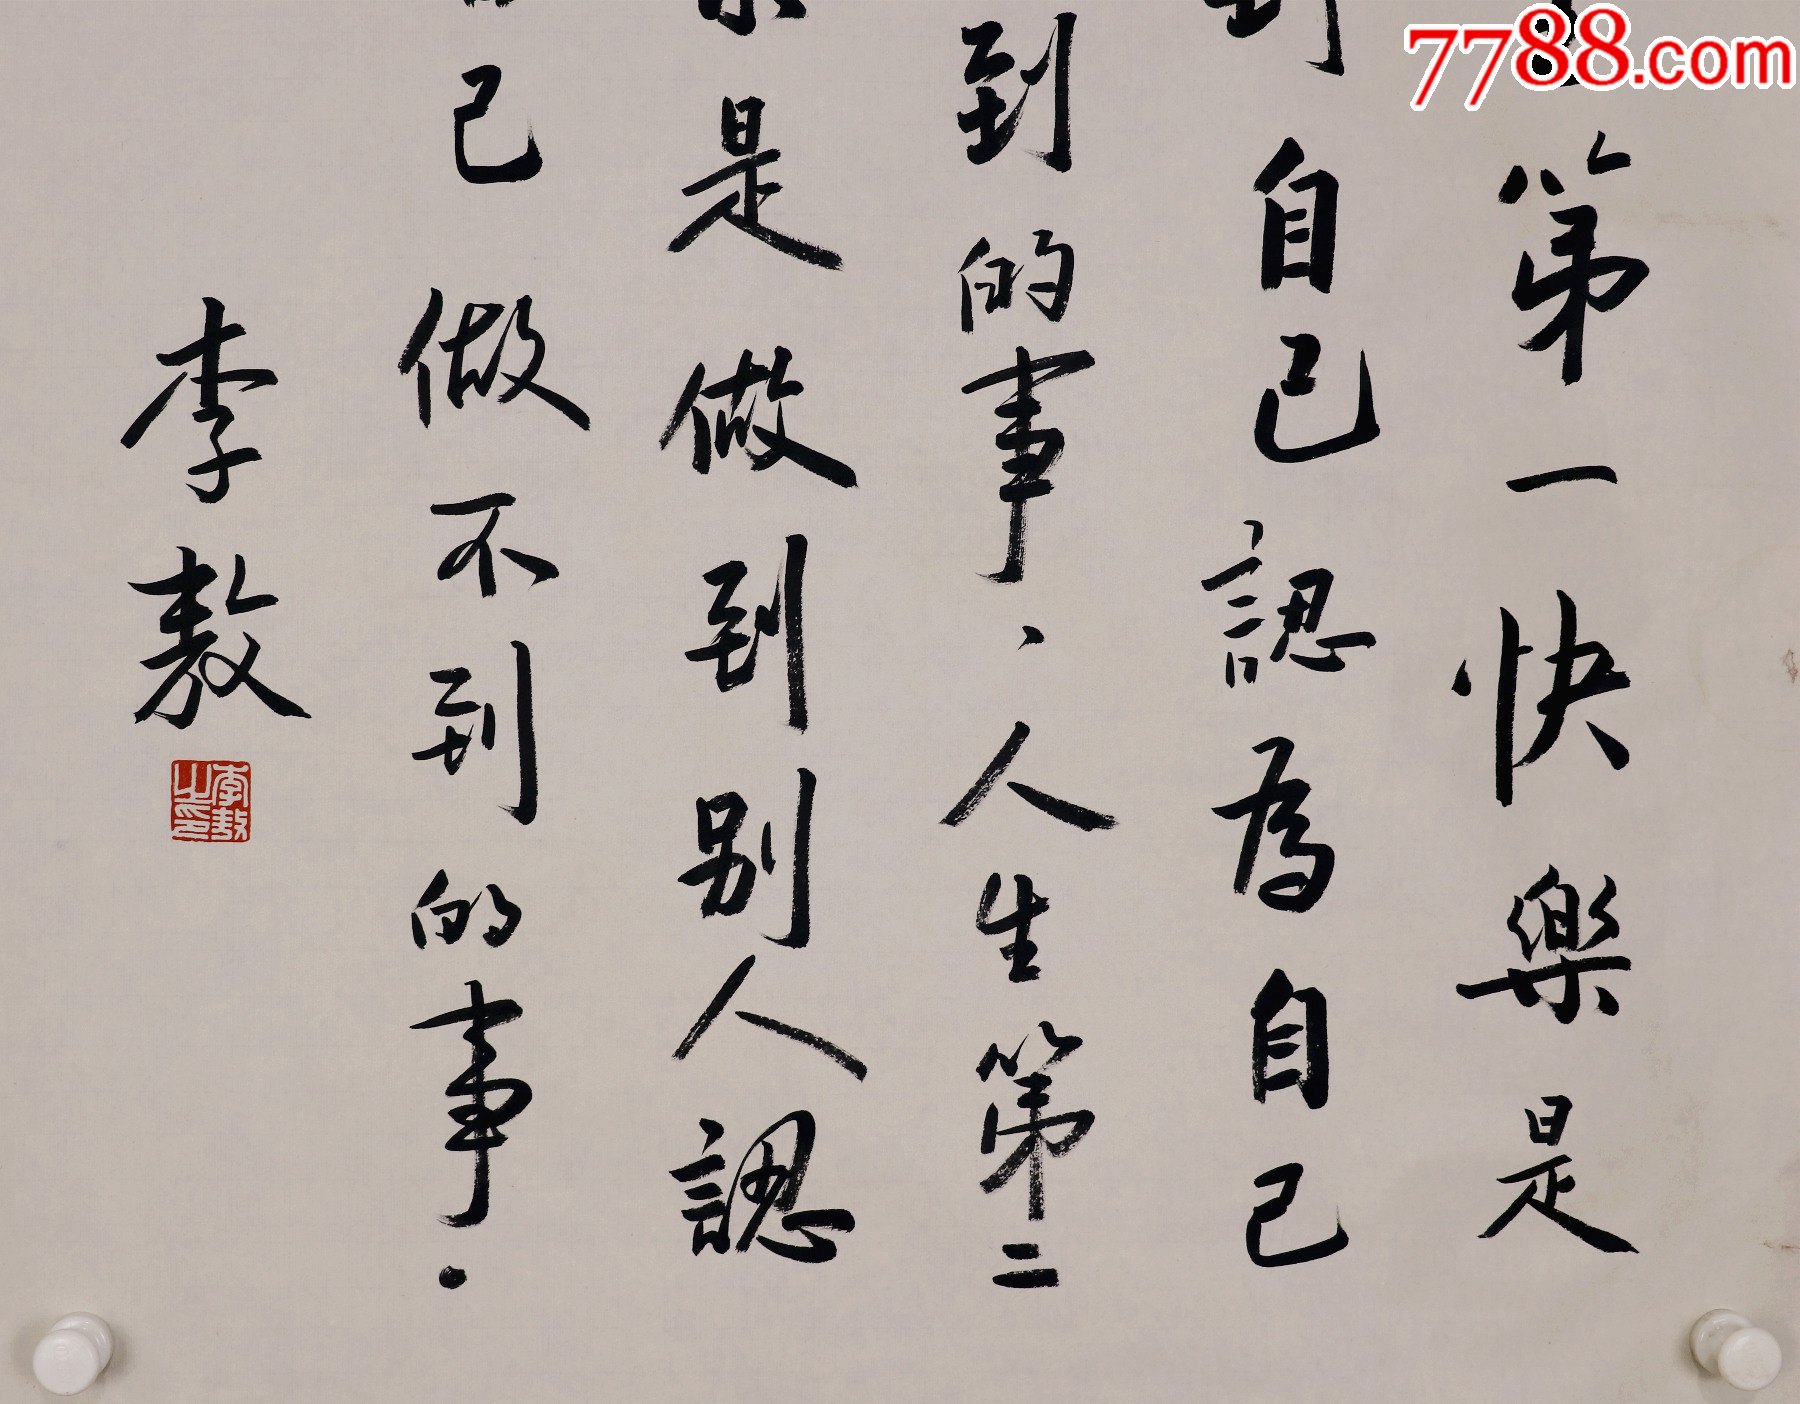 7788.com
第一快樂是
自己認为自己
到的事、人生第二
是做到别人認
己做不到的事.
李敖
李敖之印